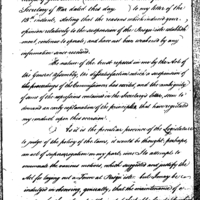 Secretary of War dated this day to my letter of the
18th instant, stating that the reasons which induced your
opinion relatively to the suspension of the Presqu'isle establish
ment, continue to exist, and have not been weakened by any
information since received.
The nature of the trust reposed in me by the Act of
the General Assembly, the dissatisfaction which a suspension of
the proceedings of the Commissioners has excited, and the conformity
of some of the expressions contained in the Secretary's letter, seem to
demand an early explanation of the principles that have regulated
my conduct upon this occasion.
As it is the peculiar province of the Legislature
to judge of the policy of the laws, it would be thought, perhaps,
an act of in our part, were I to attempt to
enumerate the various motives, which suggested and justify the
Act for laying out a Town at Presqu'isle: but I may be
indulged in observing, generally, that the maintenance of